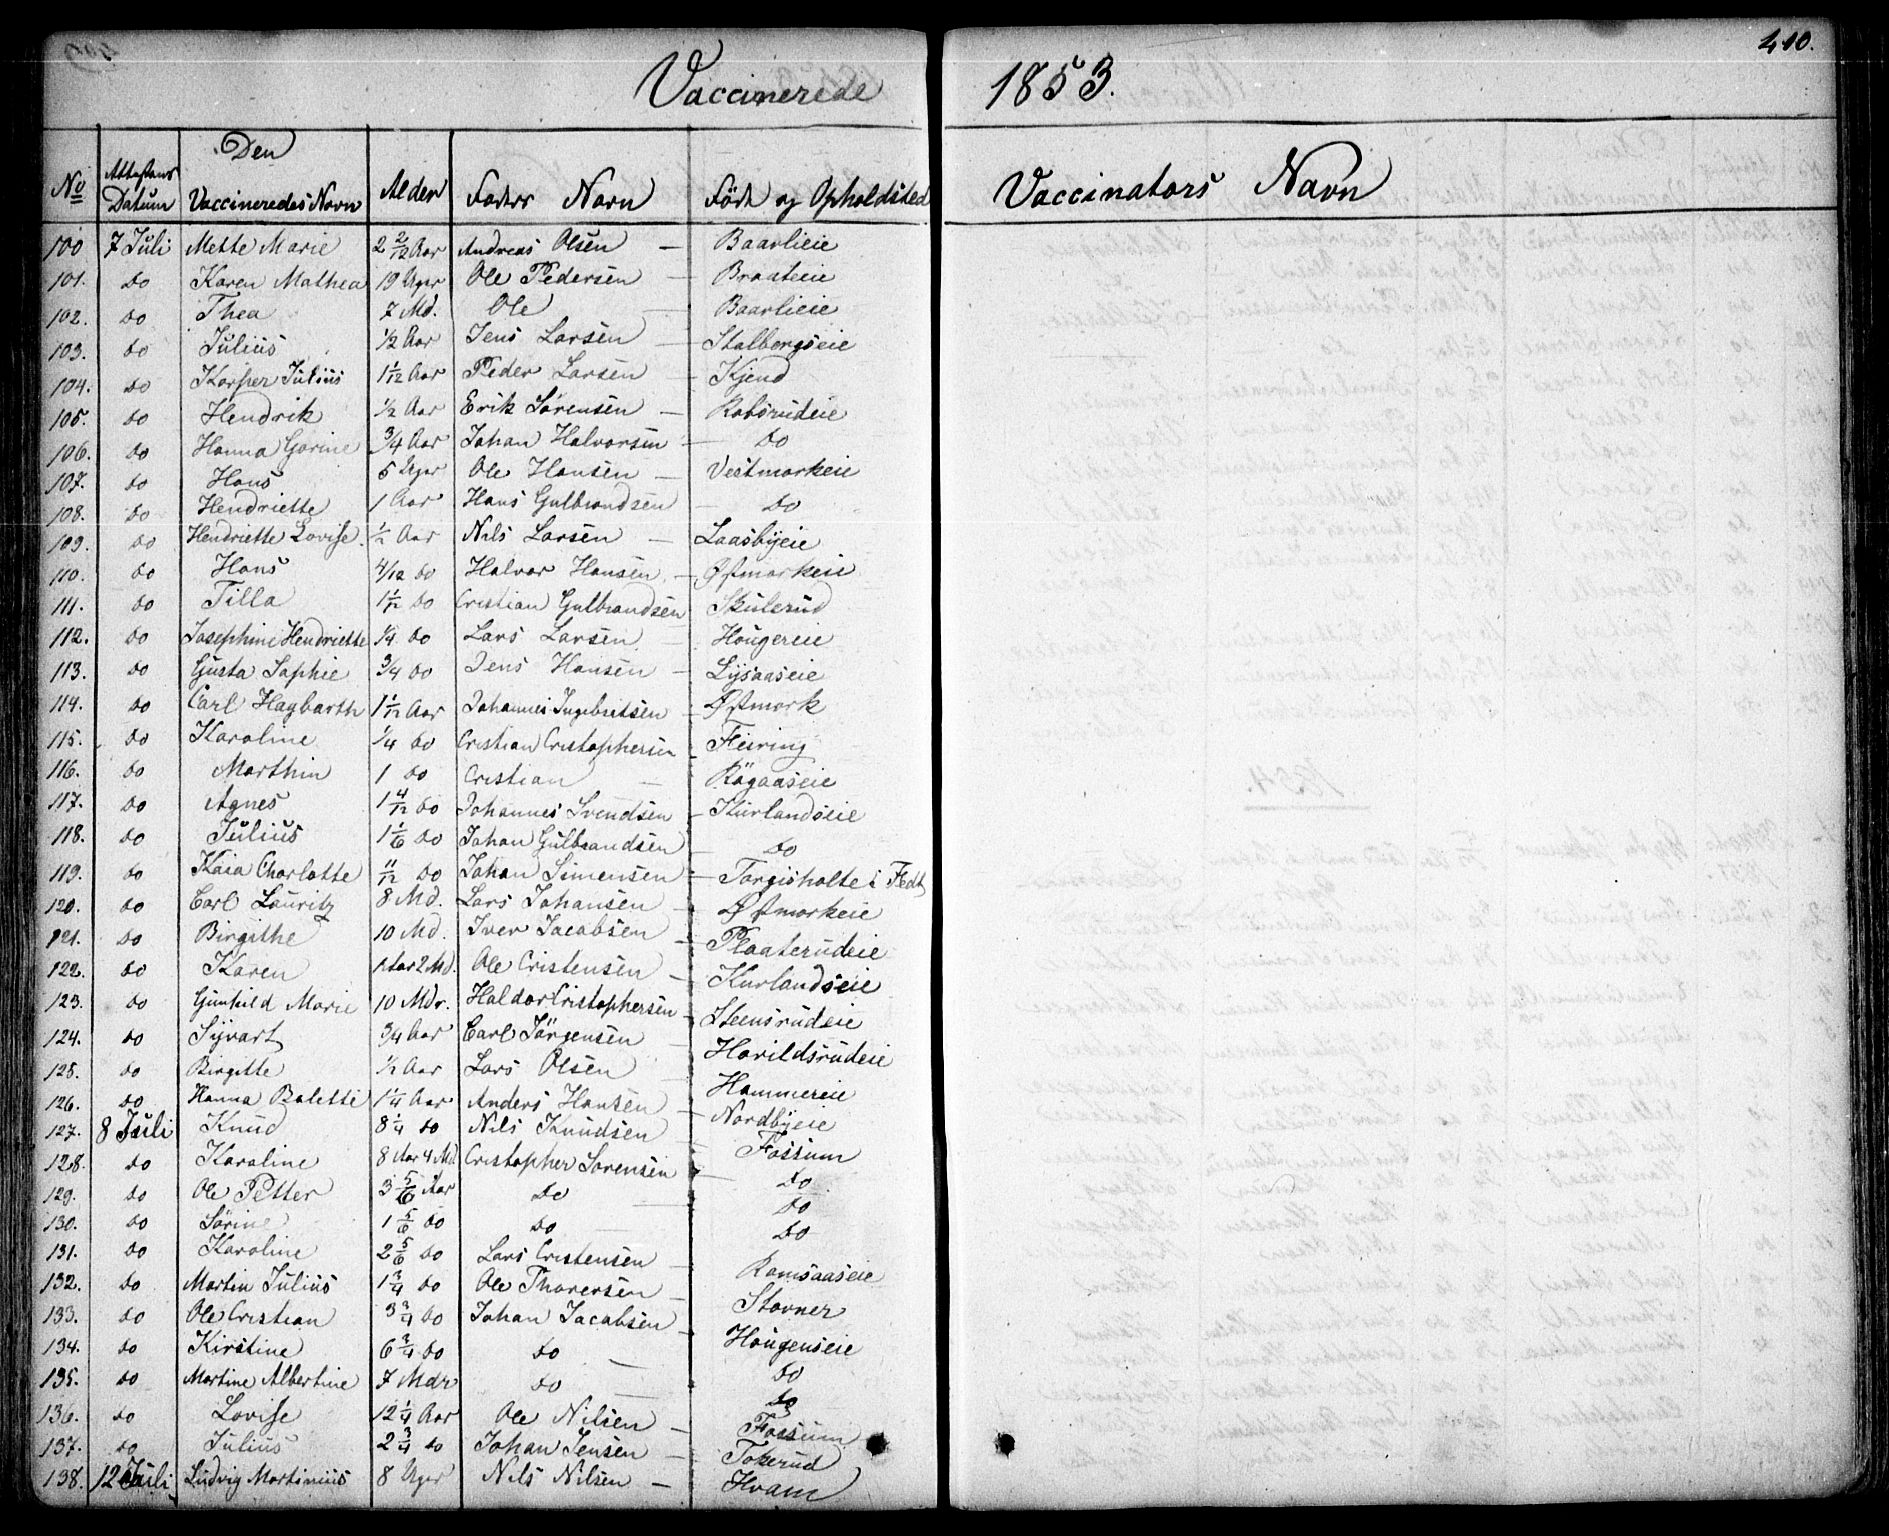 410.
Vaccinerede 1853.
No Attestens Datum Den Vaccineredes Navn Alder Faders Navn Födt og Opholdsted Vaccinators Navn
100 7 Juli Mette Marie 2 2/12 Aar Andreas Olsen — Baarlieie
101. do Karen Mathea 19 Uger Ole Pedersen Braateie
102. do Thea 7 Md. Ole — Baarlieie
103. do Julius 1/2 Aar Jens Larsen — Stalbergseie
104. do Kasper Julius 1 1/12 Aar Peder Larsen — Kjend
105. do Hendrik 1/2 Aar Erik Sörensen — Robsrudeie
106. do Hanna Gorine 3/4 Aar Johan Halvorsen — do
107. do Hans 5 Uger Ole Hansen — Vestmarkeie
108. do Hendriette 1 Aar Hans Gulbrandsen — do
109. do Hendriette Lovise 1/2 Aar Nils Larsen — Laasbyeie
110. do Hans 4/12 do Halvor Hansen — Østmarkeie
111. do Tilla 1 1/12 do Cristian Gulbrandsen Skulerud
112. do Josephine Hendriette 1/4 do Lars Larsen — Hougereie
113. do Gusta Sophie 3/4 do Jens Hansen — Lysaaseie
114. do Carl Hagbarth 1 1/12 Aar Johannes Ingebretsen — Østmark
115. do Karoline 1/4 do Cristian Cristophersen — Fleiring
116. do Marthin 1 do Cristian — Rögaaseie
117. do Agnes 1 4/12 do Johannes Svendsen — Kurlandseie
118. do Julius 1 1/6 do Johan Gulbrandsen do
119. do Kaia Charlotte 11/12 do Johan Simensen — Torgisholte i Fedt
120. do Carl Lauritz 8 Md. Lars Johansen — Østmarkeie
121. do Birgithe 10 Md. Iver Jacobsen — Plaaterudeie
122. do Karen 1 Aar 2 Md. Ole Cristensen — Kurlandseie
123. do Gunhild Marie 10 Mdr. Haldor Cristophersen — Steensrudeie
124. do Syvart 3/4 Aar Carl Jörgensen — Harildsrudeie
125. do Birgitte 1/2 Aar Lars Olsen — Hammereie
126. do Hanna Balette 1 1/4 Aar Anders Hansen — Nordbyeie
127. 8 Juli Knud 8 1/4 do Nils Knudsen — Fossum
128. do Karoline 8 Aar 4 Md Cristopher Sorensen — do
129. do Ole Petter 3 5/6 Aar do do
130. do Sörine 1 5/6 do do — do
131. do Karoline 2 5/6 do Lars Cristensen — Romsaaseie
132. do Martin Julius 1 3/4 do Ole Thoversen — Stovner
133. do Ole Cristian 3 3/4 do Johan Jacobsen — Hougenseie
134. do Kirstine 6 3/4 do do — do
135. do Martine Albertine 7 Mdr do — do
136. do Lovise 12 1/4 Aar Ole Nilsen — Fossum
137. do Julius 2 3/4 do Johan Jensen — Tokerud
138. 12 Juli Ludvig Martinius 8 Uger Nils Nilsen — Hvam